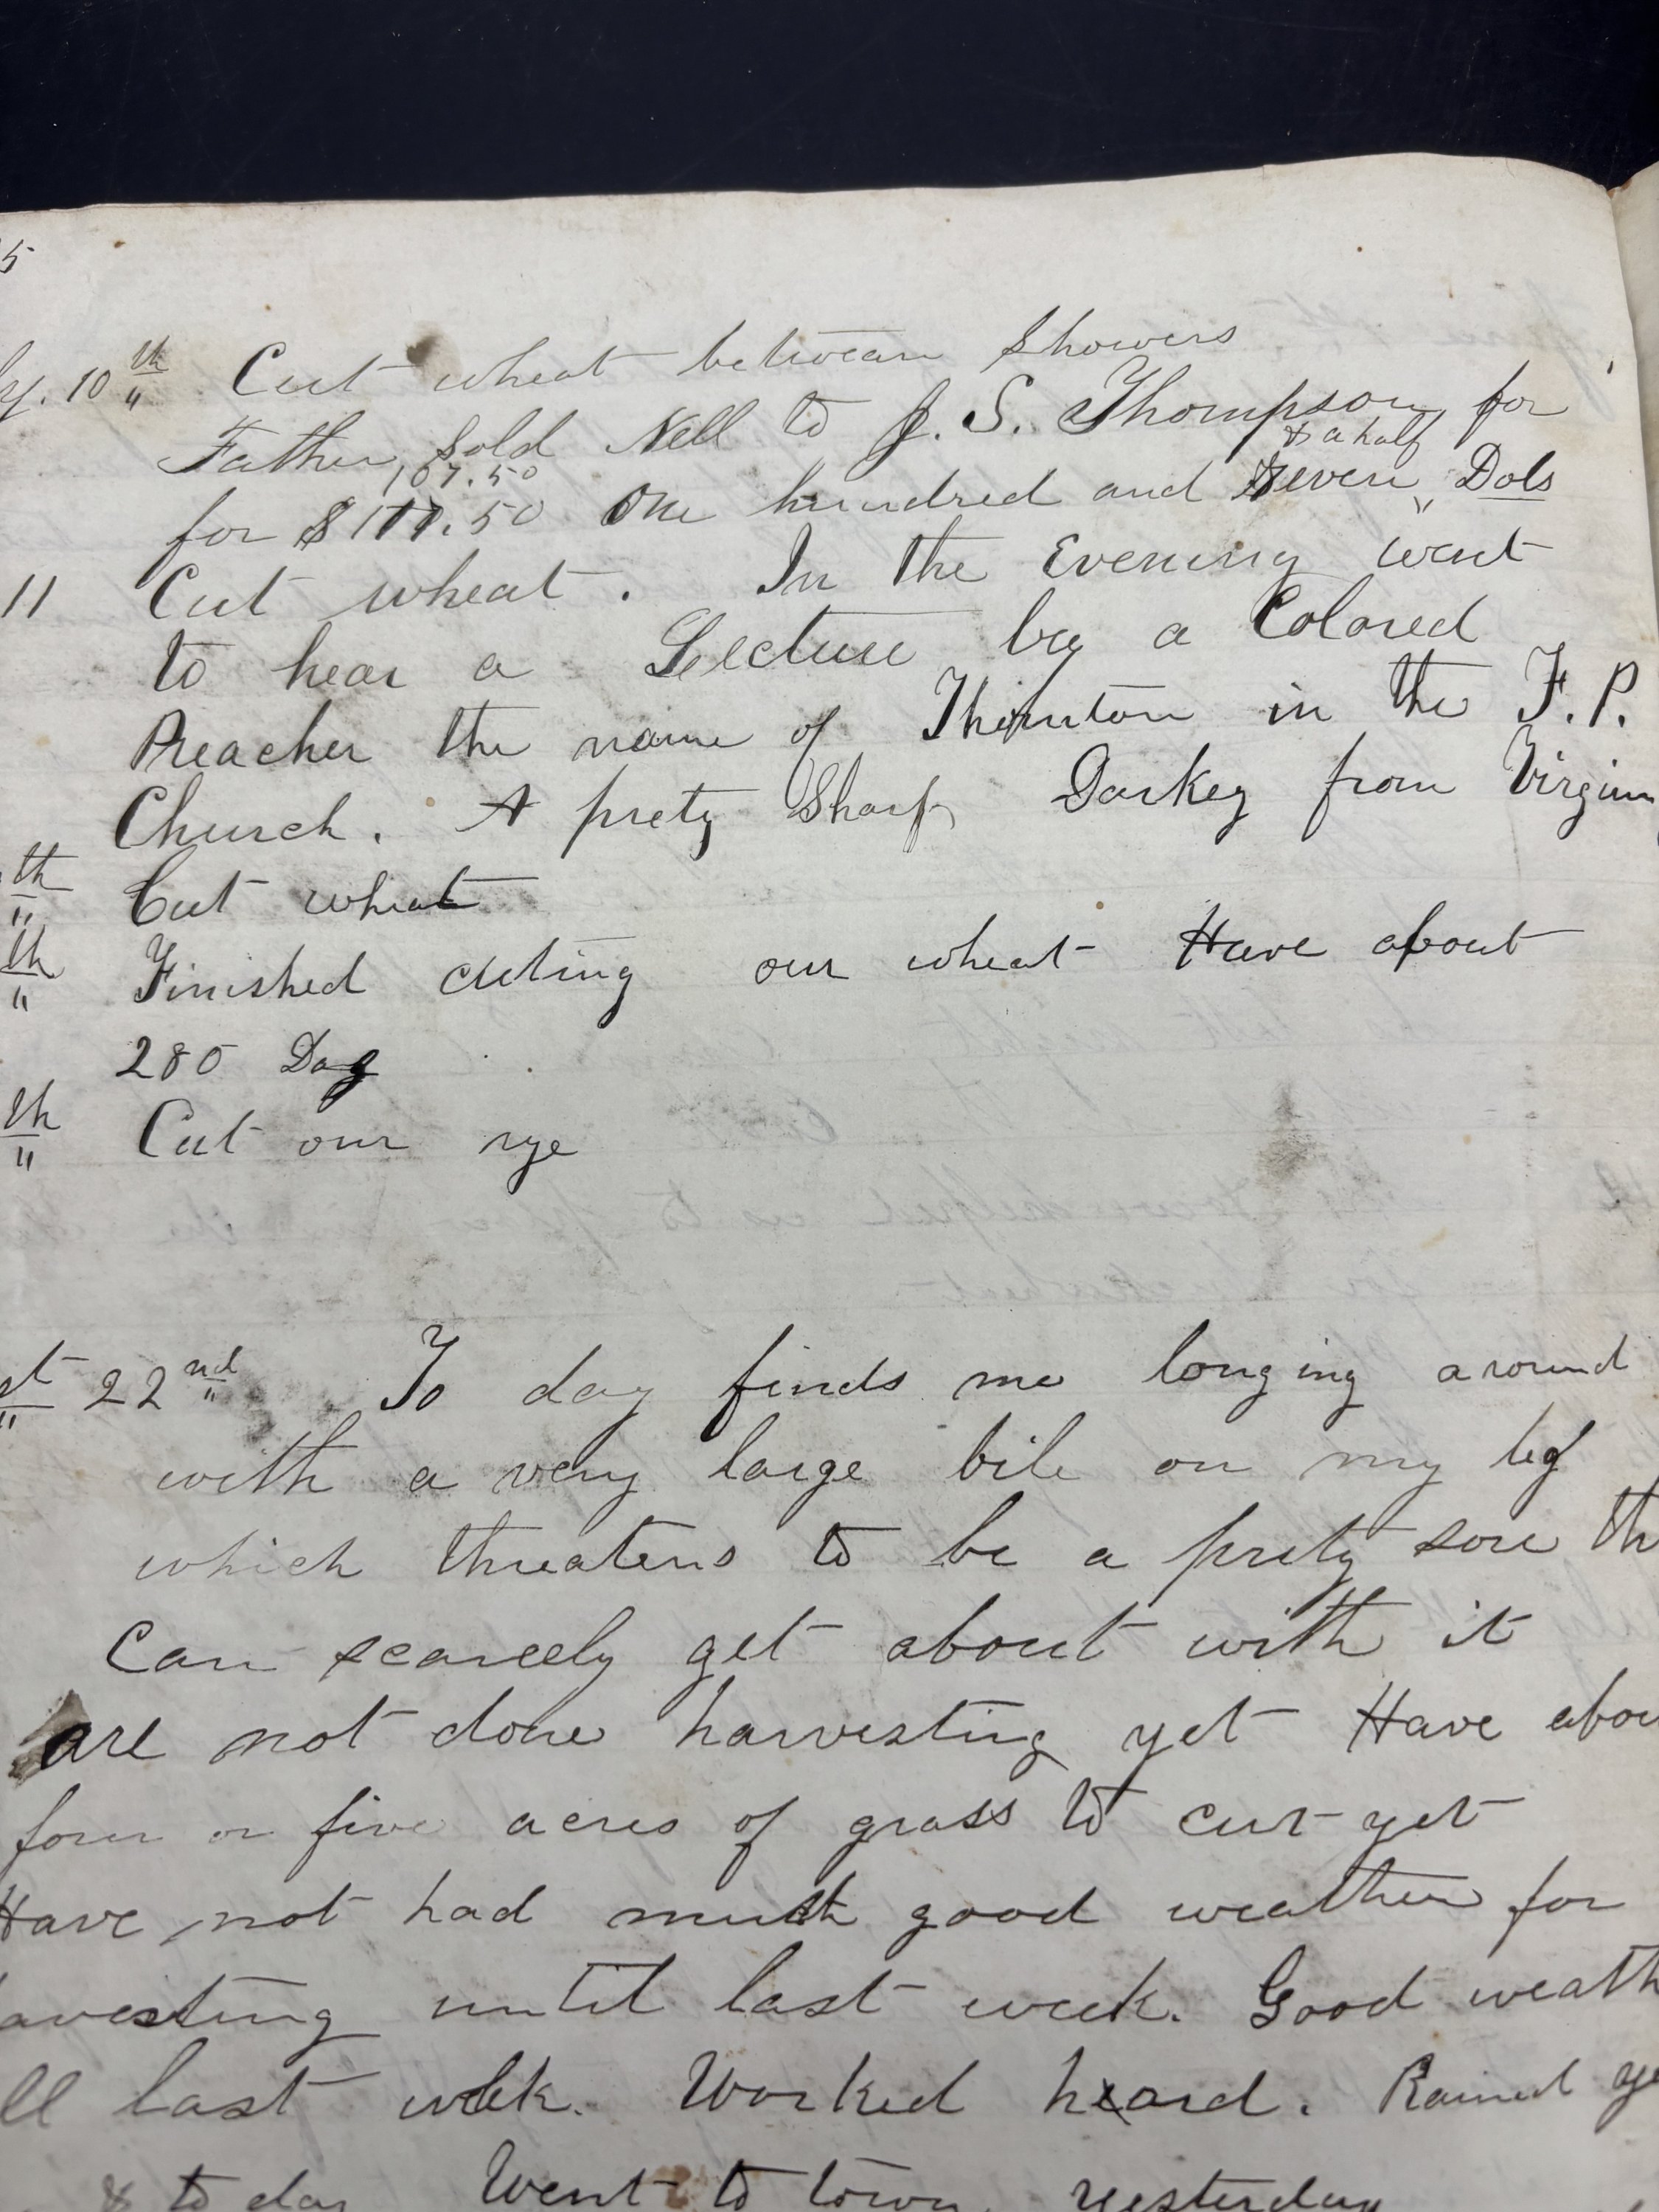 5
y. 10th Cut wheat between Showers
Father Sold Nell to J. S. Thompson for
107.50 & a half
for $107.50 One hundred and Seven " Dols
11 Cut wheat. In the Evening went
to hear a Lecture by a Colored
Preacher the name of Thornton in the F. P.
Church. A prety Sharp Darkey from Virgin
th Cut wheat
th Finished cuting our wheat Have about
280 Doz
th Cut our rye
st 22nd To day finds me longing around
with a very large bile on my leg
which threatens to be a prety sore th
Can scarcely get about with it
are not done harvesting yet Have abou
four or five acres of grass to cut yet
Have not had much good weather for
arvesting until last week. Good weath
ll last week. Worked hard. Rained ye
& to day Went to town yesterday